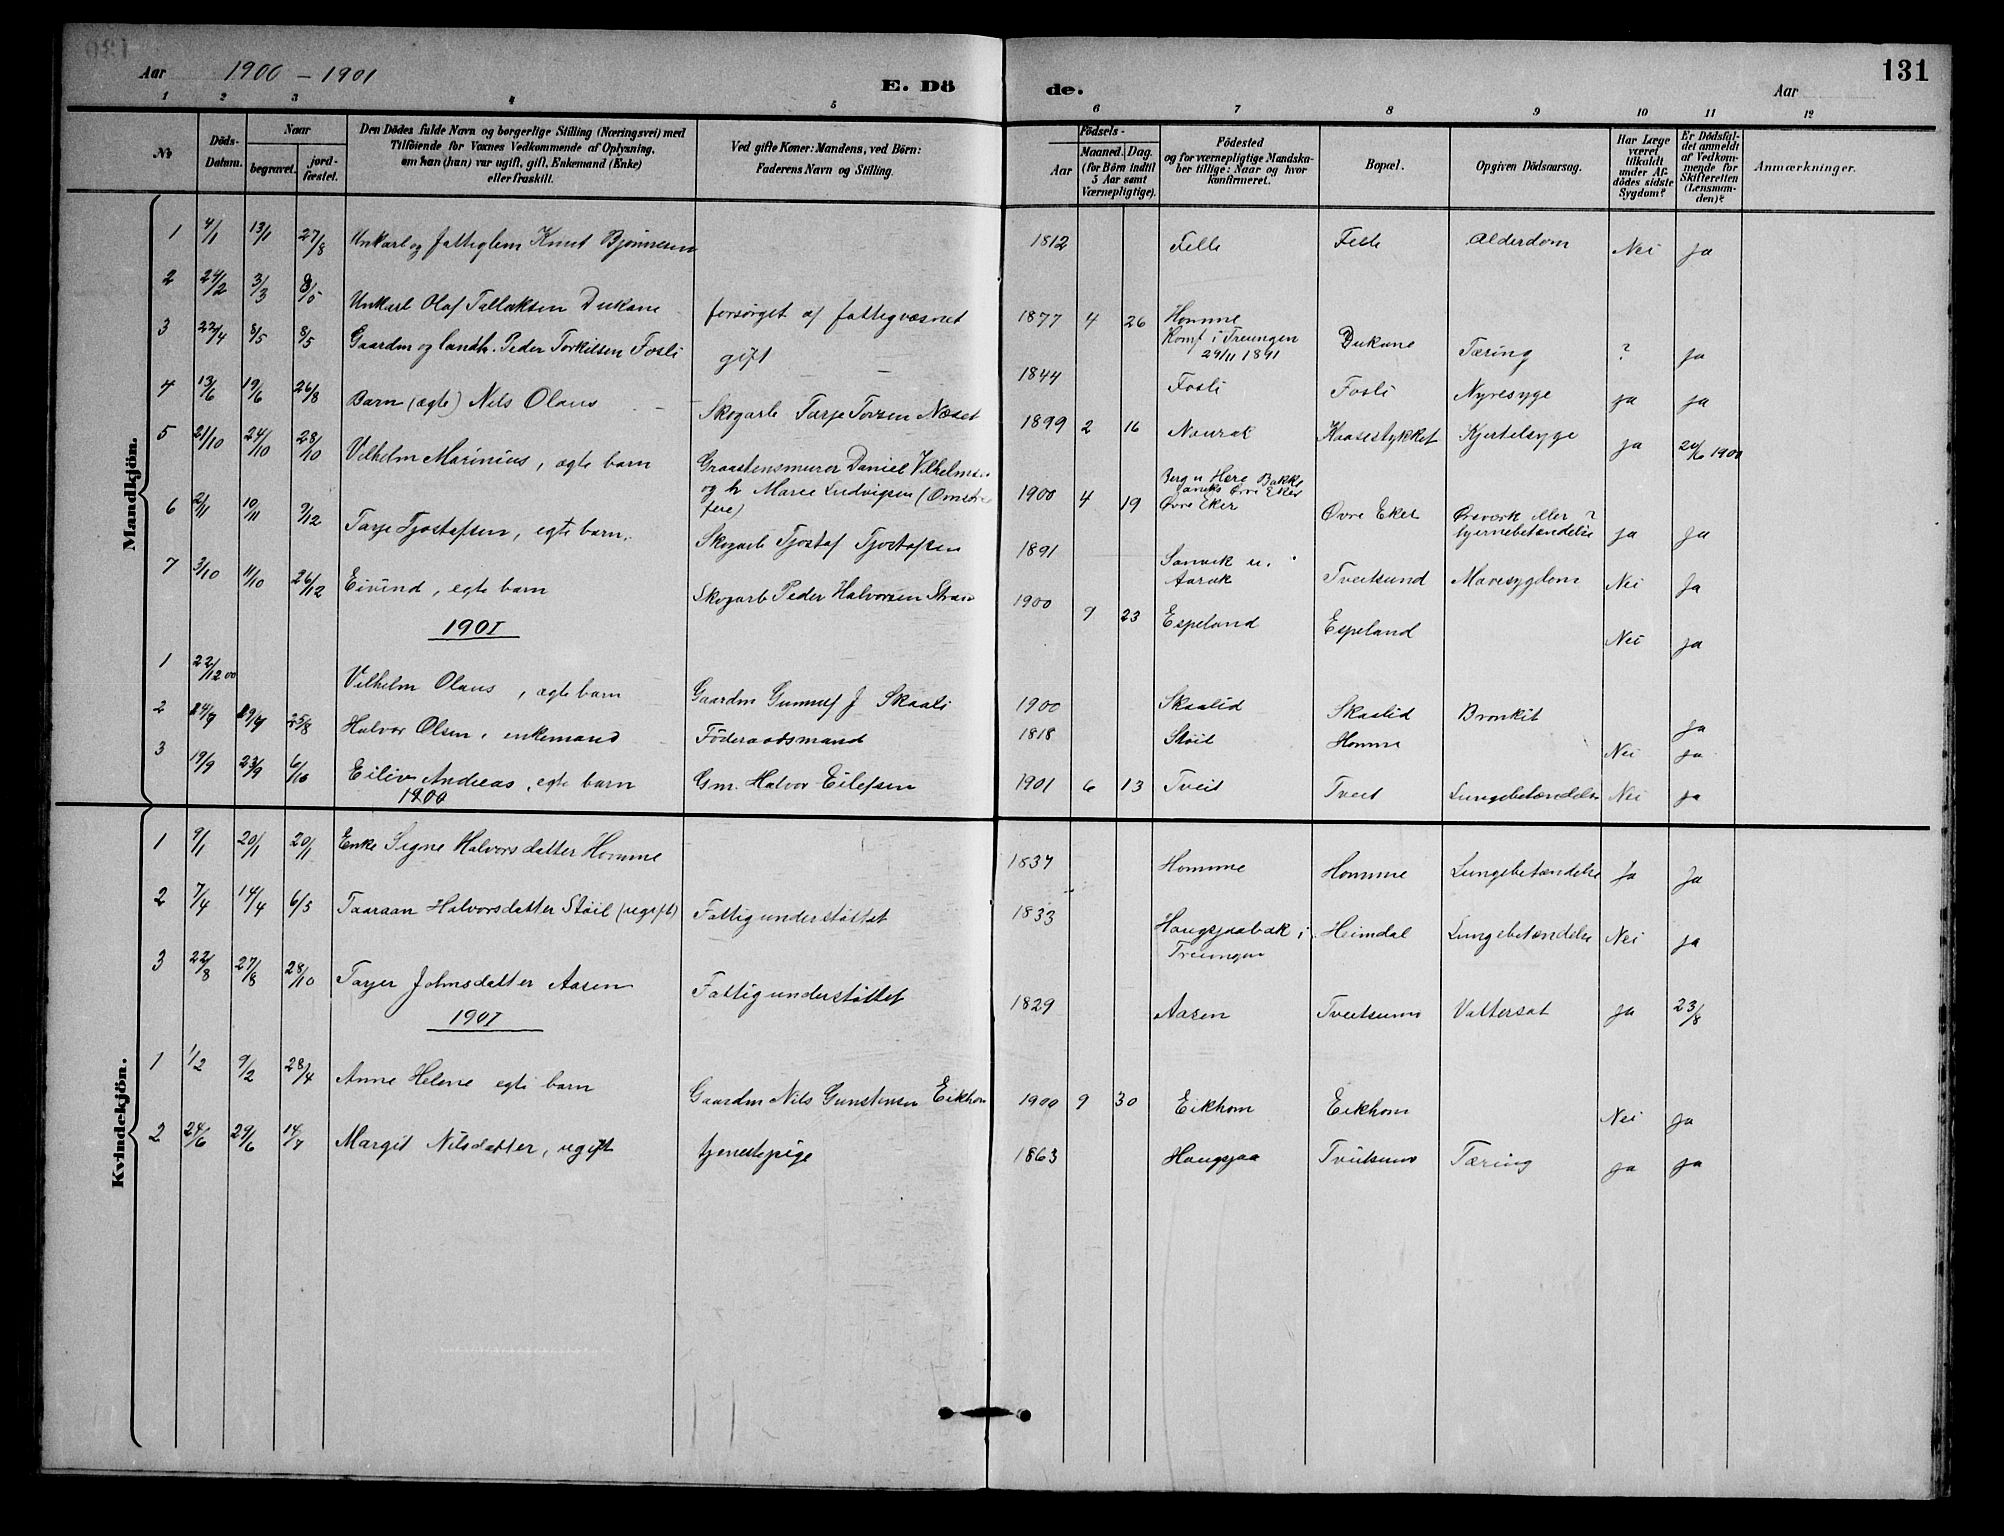 131
Aar 1900 – 1901
E. Dö de.
Aar
1 2 3 4 5 6 7 8 9 10 11 12
No
Döds-Datum.
Naar
begravet.
jord-fæstet.
Den Dödes fulde Navn og borgerlige Stilling (Næringsvei) med
Tilföiende for Voxnes Vedkommende af Oplysning,
om han (hun) var ugift, gift, Enkemand (Enke)
eller fraskilt.
Ved gifte Koner: Mandens, ved Börn:
Faderens Navn og Stilling.
Födsels-
Aar
Maaned. Dag.
(for Börn indtil
5 Aar samt
Værnepligtige).
Födested
og for værnepligtige Mandska-
ber tillige: Naar og hvor
konfirmeret.
Bopæl.
Opgiven Dödsaarsag.
Har Læge
været
tilkaldt
under Af-
dödes sidste
Sygdom?
Er Dödsfal-
det anmeldt
af Vedkom-
mende for
Skifteretten
(Lensman-
den)?
Anmærkninger.
Mandkjön.
1 4/1 13/1 27/8 Unkarl og fattiglem Knut Bjønnesen 1812 Felle Felle Alderdom Nei Ja
2 24/2 3/3 8/5 Unkarl Olaf Tallaksen Dukane forsørget af fattigvæsnet 1877 4 26 Homme
Konf i Treungen
29/11 1891 Dukane Tæring ? Ja
3 22/4 8/5 8/5 Gaardm og landh. Peder Torkilsen Fosli gift – 1844 Fosli Fosli Nyresyge ja ja
4 13/6 19/6 26/8 Barn (ægte) Nils Olaus – Skogarb Tarje Torsen Næset 1899 2 16 Naurak Kaasestykket Kjertelsyge ja 20/6 1900
5 21/10 24/10 28/10 Vilhelm Marinius, ægte barn Graastensmurer Daniel Vilhelmsen
og h Maree Ludvigsen 1900 4 19 Berg u Here Bakke
Øvre Eker
Øvre Eker Øvre Eker Ørevark eller ?
hjernebetændelse ja Ja
6 2/11 10/11 9/12 Tarje Tjostafsen, egte barn. Skogarb Tjostaf Tjostafsen 1891 Sanvik u.
Aarak Tveitsund Mavesygdom Nei Ja
7 3/10 11/10 26/12 Eivind, egte barn Skogarb Peder Halvorsen Stran 1900 9 23 Espeland Espeland Nei ja
1901
1 22/12 00 Vilhelm Olaus, ægte barn Gaardm Gunnuf J Skaali 1900 Skaalid Skaalid Bronkit Ja
2 Halvor Olsen, enkemand Föderaadsmand 1818 Støil Homme Nei ja
3 19/9 23/9 6/10 Eiliv Andreas, egte barn Gm. Halvor Eilefsen 1901 6 13 Tveit Tveit Lungebetændelse Nei ja
Kvindekjön.
1900
1 9/1 20/1 20/1 Enke Signe Halvorsdatter Homme 1837 Homme Homme Lungebetændelse Ja Ja
2 7/4 14/4 6/5 Taaraan Halvorsdatter Støil (ugift) Fattigunderstøttet 1833 Haugsjaabak i
Treungen Heimdal Lungebetændelse Nei ja
3 22/8 27/8 28/10 Tarjer Johnsdatter Aasen Fattigunderstøttet 1829 Aasen Tveitsund Vattersot ja 23/8
1901
1 1/2 9/2 28/4 Anne Helene egte barn Gaardm Nils Gunstensen Eikhom 1900 9 30 Eikhom Eikhom Nei Ja
2 24/6 29/6 14/7 Margit Nilsdatter, ugift tjenestepige 1863 Haugsjaa Tveitsund Tæring ja ja